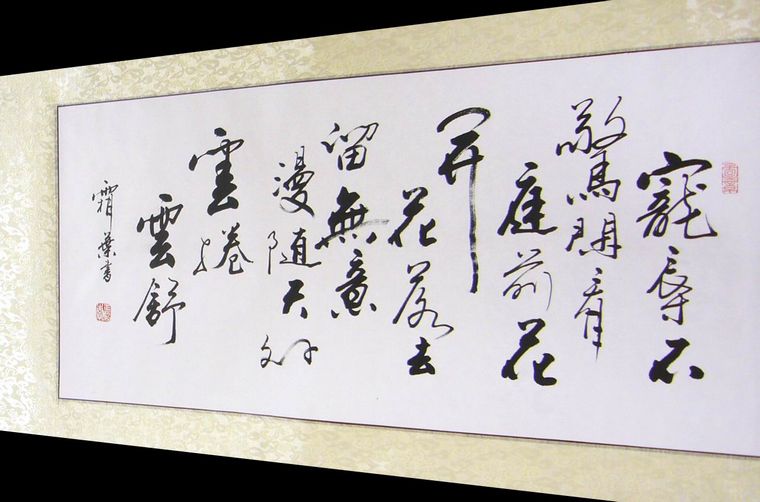 寵辱不
驚閑看
庭前花
开
花落去
留無意
漫随天外
雲捲
雲舒
霜葉書